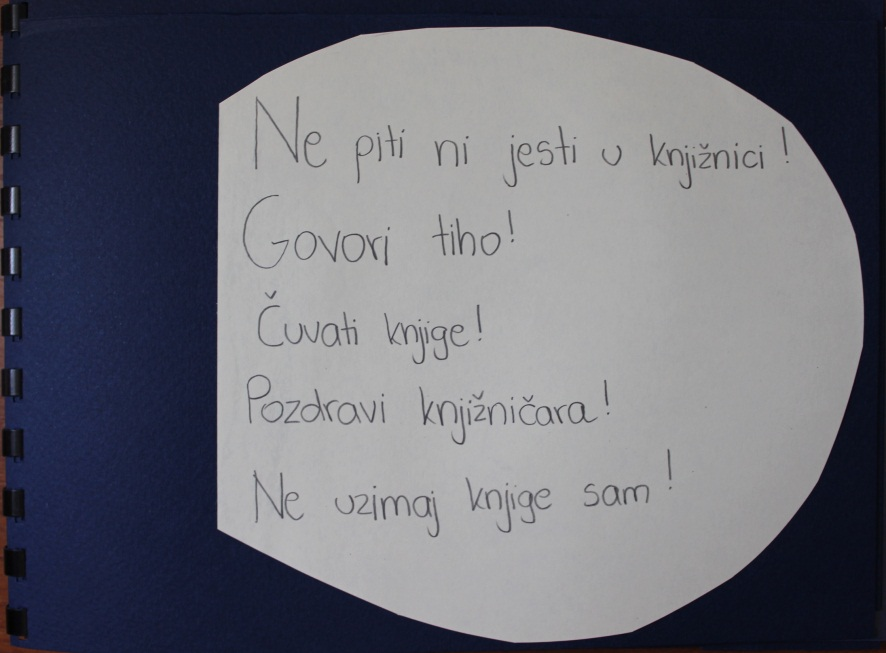 Ne piti ni jesti u knjižnici!
Govori tiho!
Čuvati knjige!
Pozdravi knjižničara!
Ne uzimaj knjige sam!